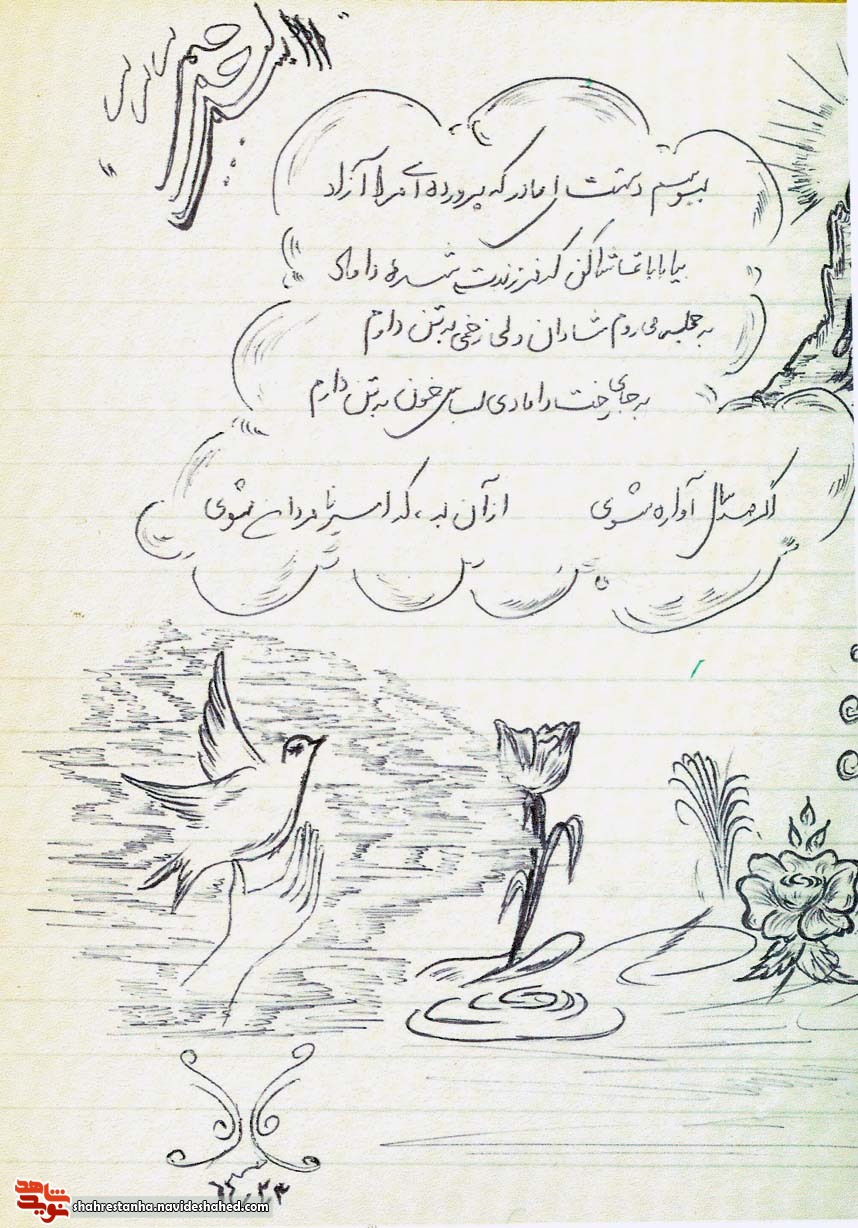 ببوسم دستت ای مادر که پرورده ای مرا آزاد
بیا بابا تماشا کن که فرزندت شده داماد
به حجله می روم شادان ولی زخمی به تن دارم
به جای رخت دامادی لباس خون به تن دارم
اگر صد سال آواره شوی از آن به، که اسیر نامردان شوی
نوید شاهد
shahrestanha.navideshahed.com